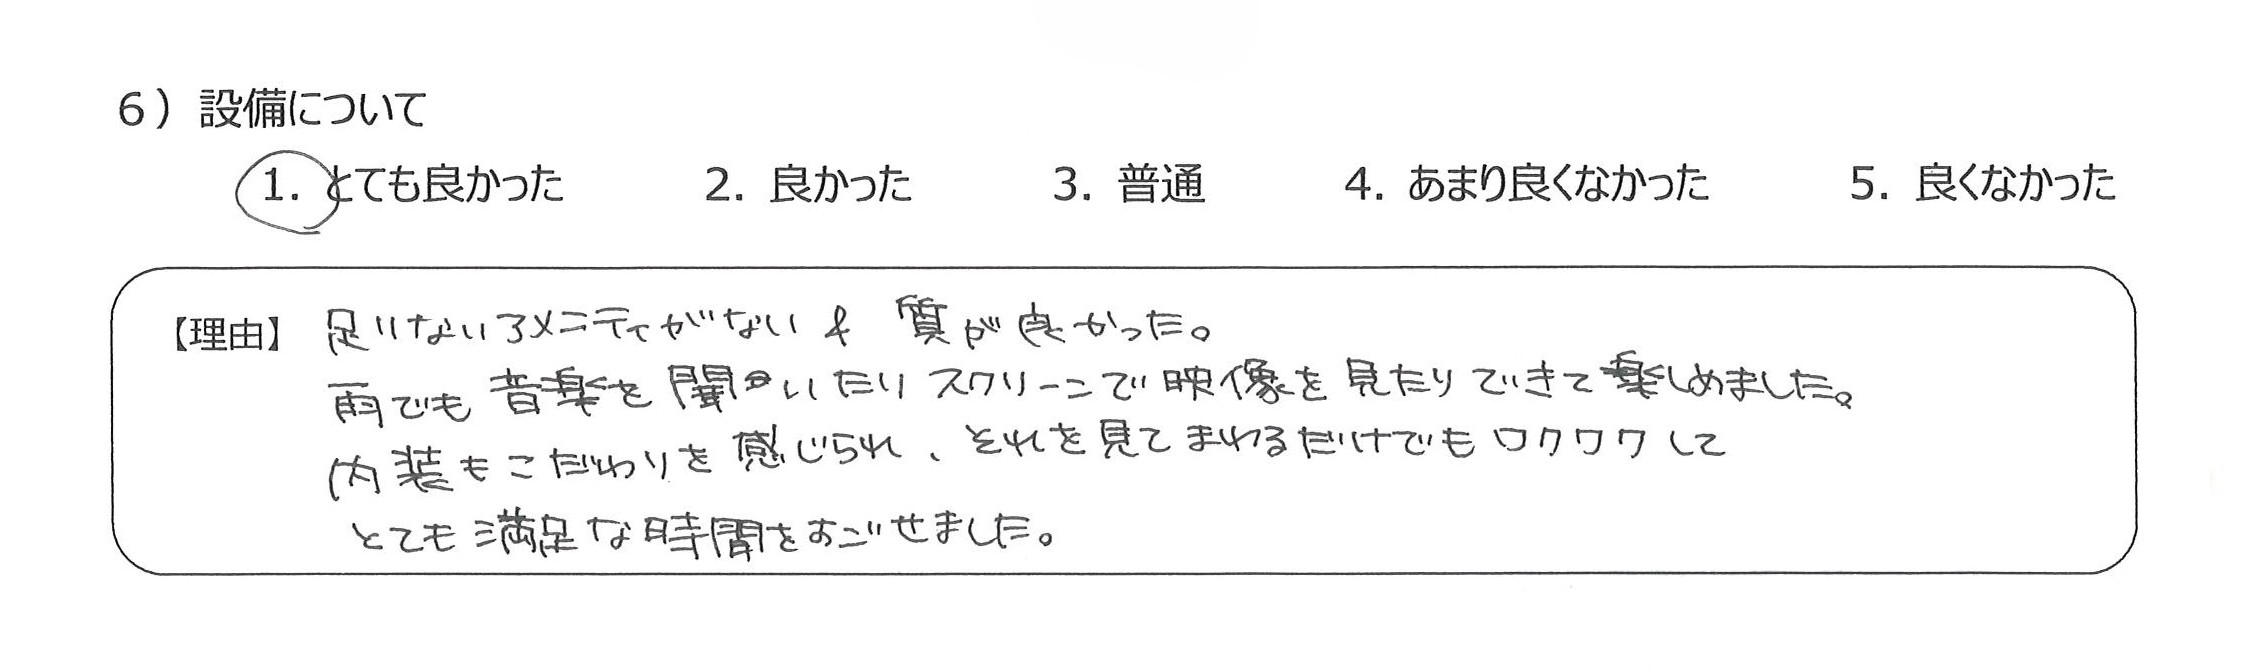 6）設備について
1. とても良かった 2. 良かった 3. 普通 4. あまり良くなかった 5. 良くなかった
【理由】 足りないアメニティがない & 質が良かった。
雨でも音楽を聞いたりスクリーンで映像を見たりできて楽しめました。
内装もこだわりを感じられ、それを見てまわるだけでもワクワクして
とても満足な時間をすごせました。